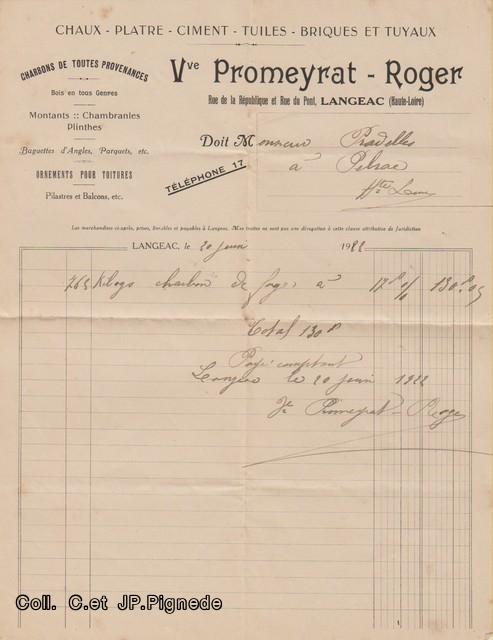 CHAUX - PLATRE - CIMENT - TUILES - BRIQUES ET TUYAUX
CHARBONS DE TOUTES PROVENANCES
Bois en tous Genres
Montants :: Chambranles
Plinthes
Baguettes d'Angles, Parquets, etc.
ORNEMENTS POUR TOITURES
Pilastres et Balcons, etc.
Vve Promeyrat - Roger
Rue de la République et Rue du Pont, LANGEAC (Haute-Loire)
Doit Monsieur Pradelles
à Pébrac
Hte Loire
TÉLÉPHONE 17
Les marchandises ci-après, prises, livrables et payables à Langeac. Mes traites ne sont pas une dérogation à cette clause attributive de Juridiction
LANGEAC, le 20 juin 1922
765 Kilogs charbon de forge à 17 F % 130 F 05
Total 130 F
Payé comptant
Langeac le 20 juin 1922
Ve Promeyrat-Roger
Coll. C.et JP.Pignede